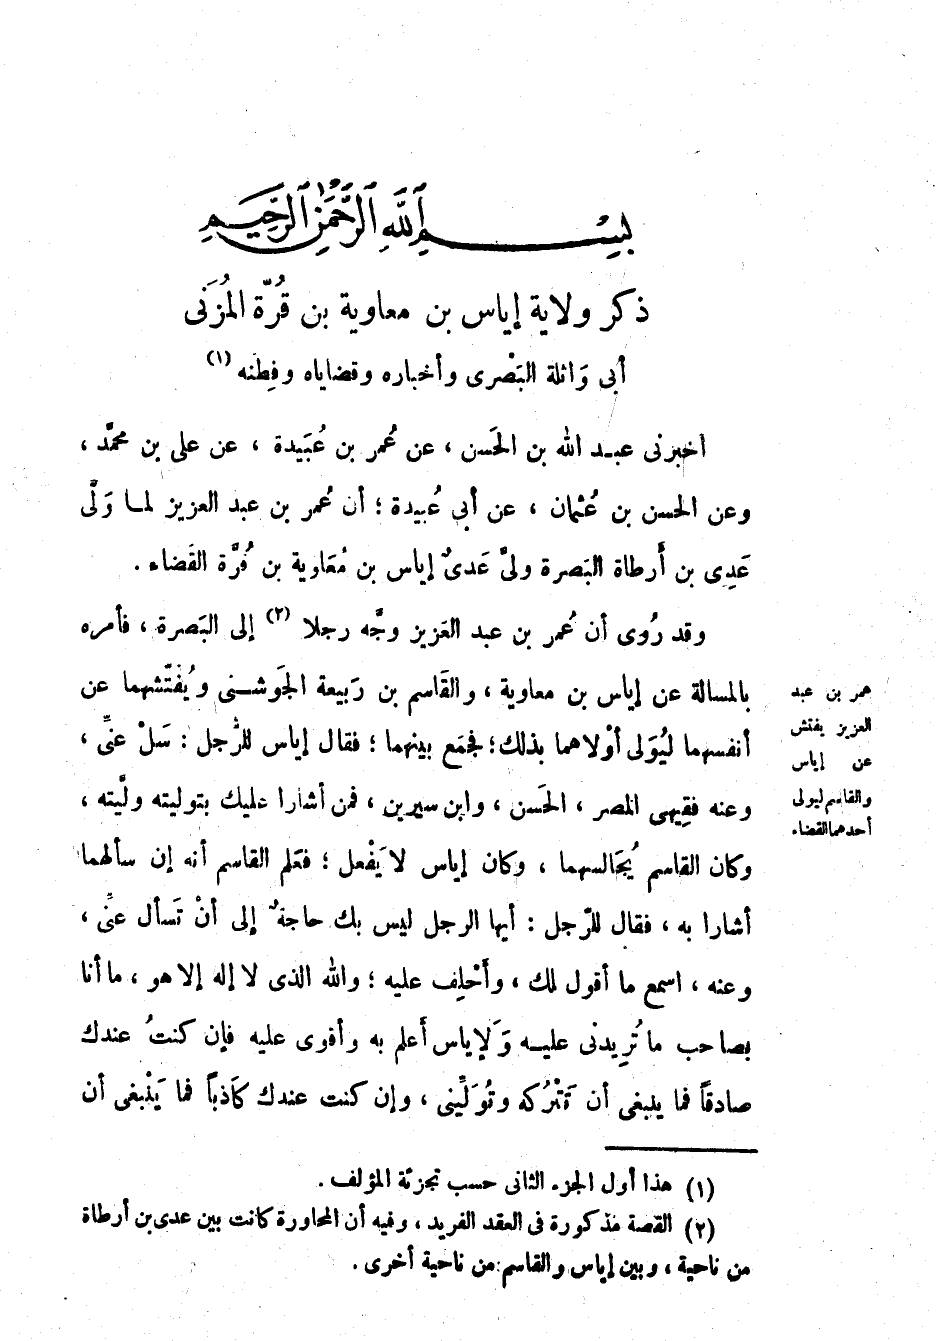 بسم الله الرحمن الرحيم
ذكر ولاية إياس بن معاوية بن قُرّة المُزَنى
أبى وَاثلة البَصْرى وأخباره وقضاياه وفِطنه (١)
أخبرنى عبد الله بن الحَسن ، عن عُمر بن عُبَيدة ، عن على بن محمَّد ،
وعن الحسن بن عُثمان ، عن أبى عُبيدة ؛ أن عُمر بن عبد العزيز لما وَلَّى
عَدِى بن أَرطاة البَصرة ولىَّ عَدىٌ إياس بن مُعَاوية بن قُرَّة القَضاء .
وقد رُوى أن عُمر بن عبد العَزيز وجَّه رجلا (٢) إلى البَصرة ، فأمره
بالمسالة عن إياس بن معاوية ، والقَاسم بن رَبيعة الجَوشنى ويُفتّشهما عن
أنفسهما ليُوَلى أوْلاهما بذلك ؛ فجمَع بينهما ؛ فقال إياس للرَّجل : سَلْ عنىِّ ،
وعنه فقِيهى المصر ، الحَسن ، وابن سيرين ، فمن أشارا عليك بتوليته ولَّيته ،
وكان القاسم يُجَالسهما ، وكان إياس لا يَفْعل ؛ فعَلم القاسم أنه إن سألهما
أشارا به ، فقال للرّجل : أيها الرجل ليس بك حاجةٌ إلى أنْ تَسأل عنىِّ ،
وعنه ، اسمع ما أقول لك ، وأَحْلِف عليه ؛ والله الذى لا إله إلا هو ، ما أنا
بصاحب ما تُرِيدنى عليه وَلَإياس أَعلم به وأقوى عليه فإن كنتُ عندك
صادقاً فما ينبغى أن تَتْرُكه وتُوَلِّينى ، وإن كنت عندك كَاذباً فما يَنْبغى أن
عمر بن عبد
العزيز يفتش
عن إياس
والقاسم ليولى
أحدهما القضاء
(١) هذا أول الجزء الثانى حسب تجزئة المؤلف .
(٢) القصة مذكورة فى العقد الفريد ، وفيه أن المحاورة كانت بين عدى بن أرطاة
من ناحية ، وبين إياس والقاسم من ناحية أخرى .